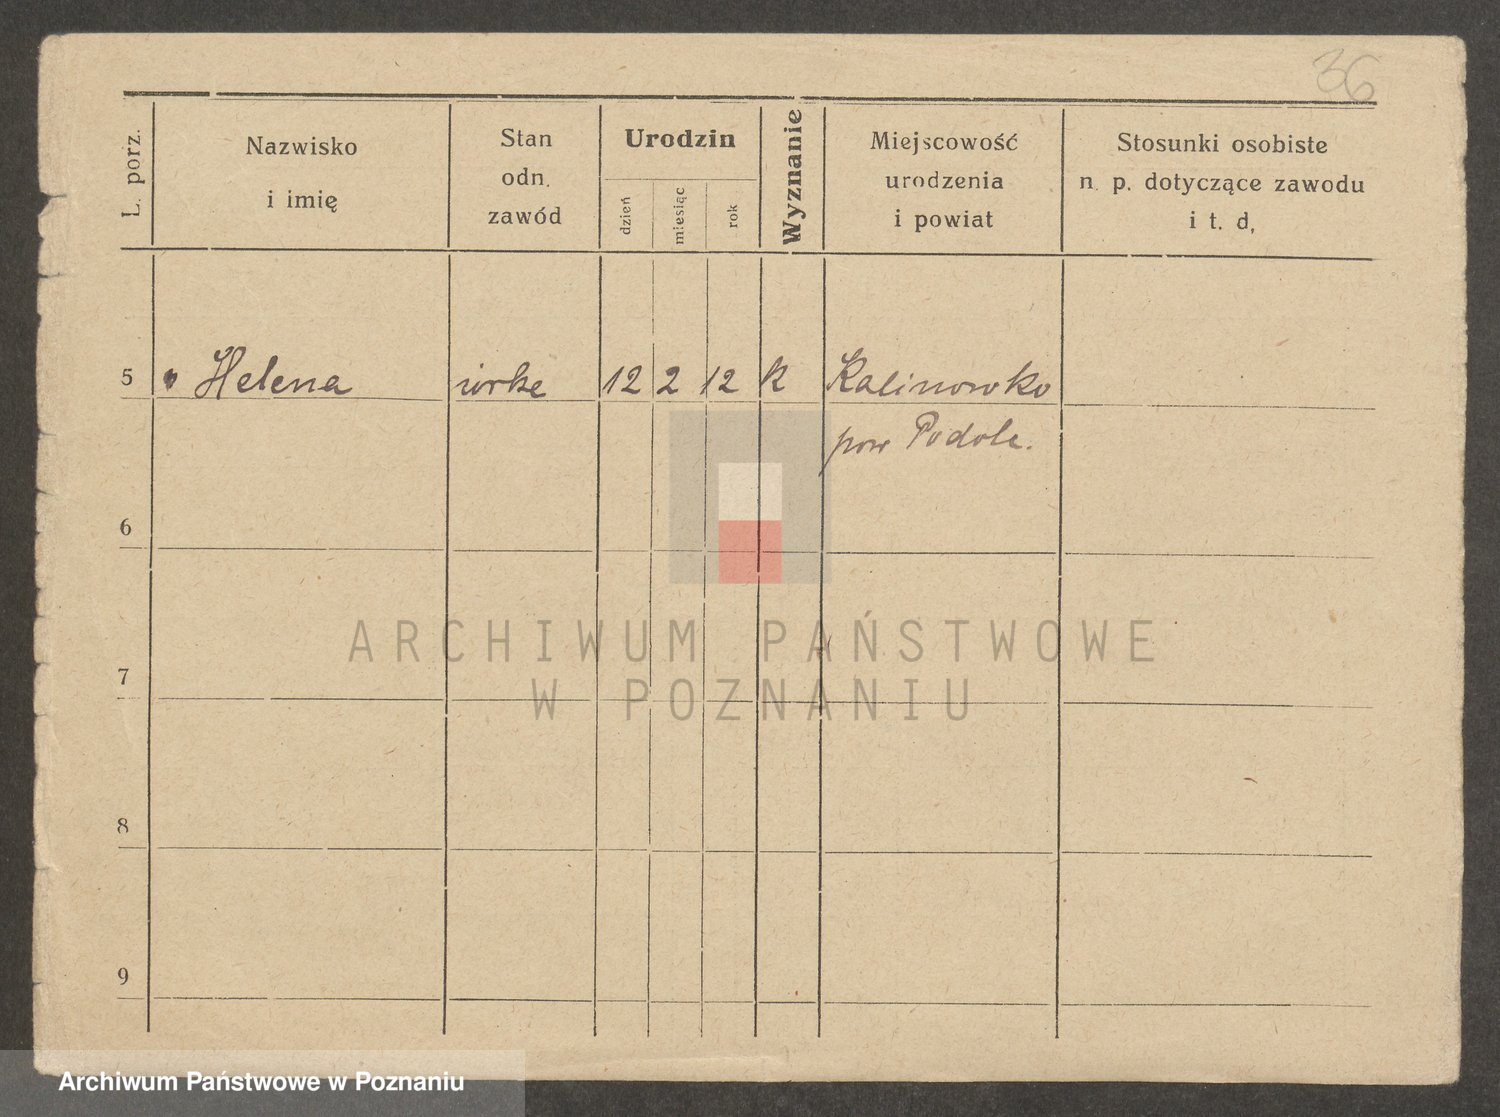 36
L. porz.
Nazwisko
i imię
Stan
odn.
zawód
Urodzin
dzień
miesiąc
rok
Wyznanie
Miejscowość
urodzenia
i powiat
Stosunki osobiste
n. p. dotyczące zawodu
i t. d,
5 " Helena 12 2 12 k Kalinowko
pow Podole.
6
7
8
9
ARCHIWUM PAŃSTWOWE
W POZNANIU
Archiwum Państwowe w Poznaniu